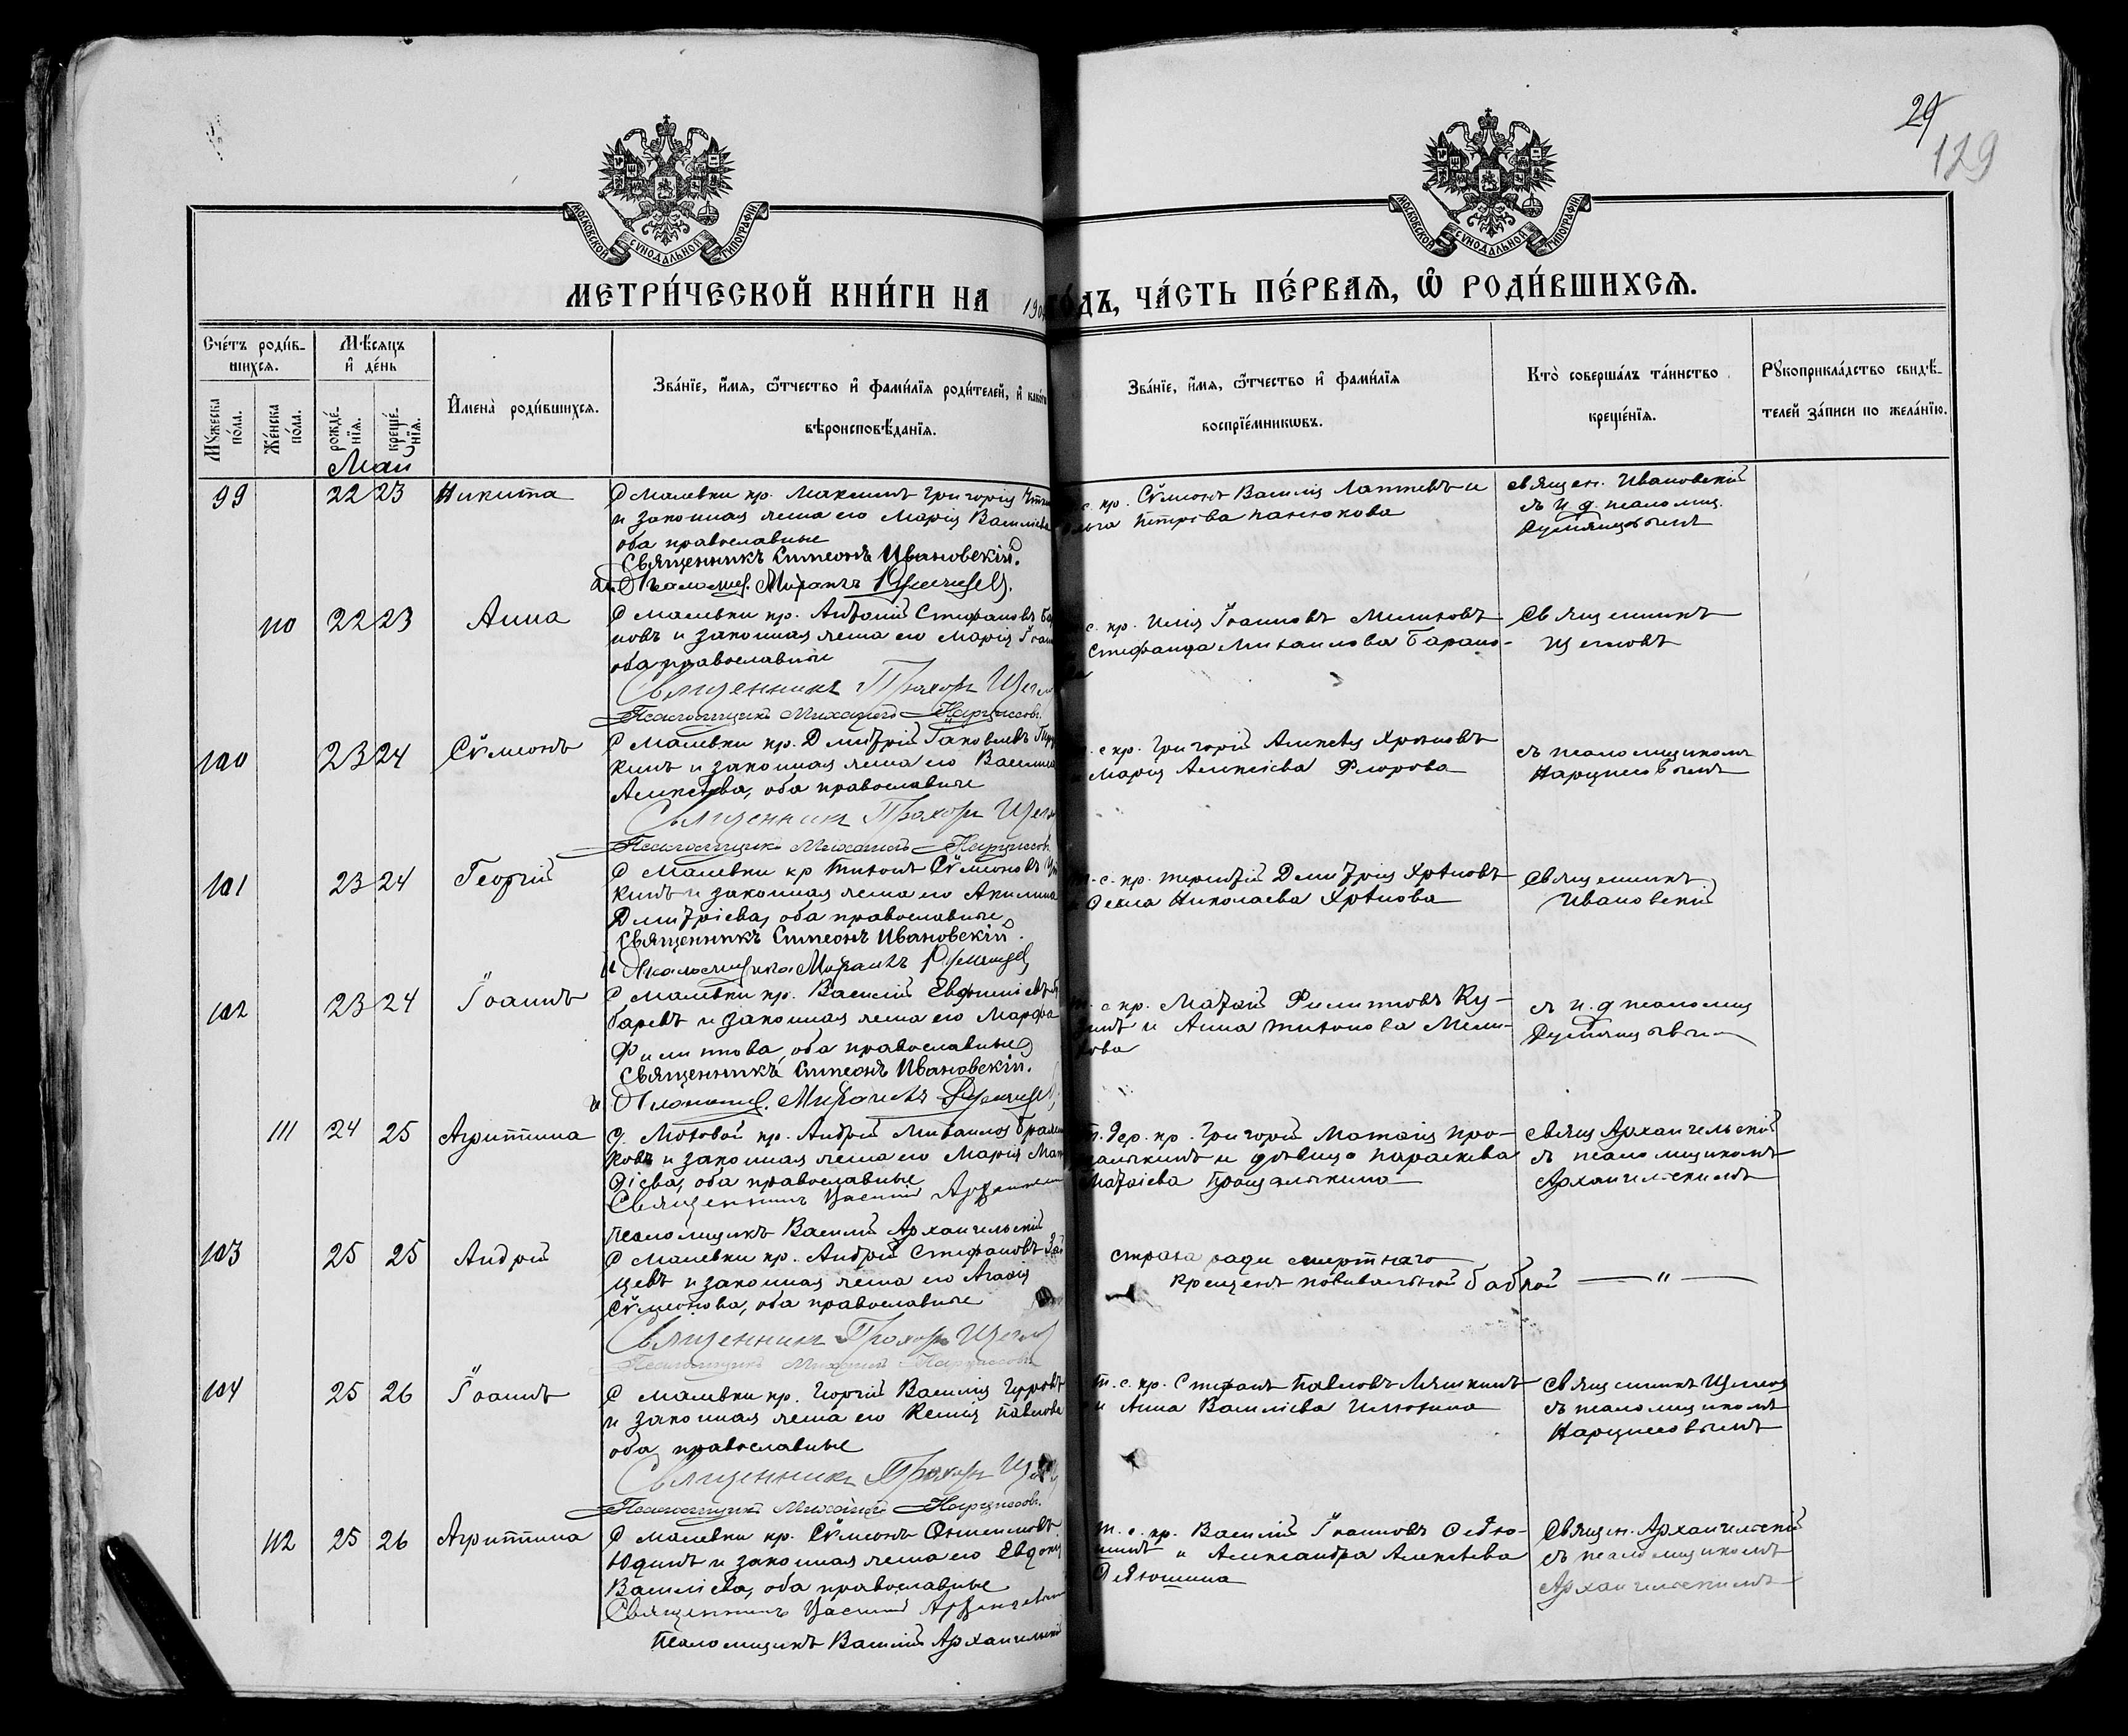 29
129
МОСКОВСКОЙ СѴНОДАЛЬНОЙ ТИПОГРАФІИ
МОСКОВСКОЙ СѴНОДАЛЬНОЙ ТИПОГРАФІИ
МЕТРИ́ЧЕСКОЙ КНИ́ГИ НА 190 ГО́ДЪ, ЧА́СТЬ ПЕ́РВАѦ, Ѽ РОДИ́ВШИХСѦ.
Сче́тъ роди́в-
шихсѧ.
Мꙋжеска по́ла.
Же́нска по́ла.
Мѣ́сяцъ и҆ де́нь
рожде́-нїѧ.
креще́-нїѧ.
И҆мена̀ роди́вшихсѧ.
Зва́нїе, и҆́мѧ, ѻ҆́тчество и҆ фами́лїѧ роди́телей, и҆ како́гѡ
вѣроисповѣ́данїѧ.
Зва́нїе, и҆́мѧ, ѻ҆́тчество и҆ фами́лїѧ
воспрїе́мникѡвъ.
Кто̀ соверша́лъ та́инство
креще́нїѧ.
Рꙋкоприкла́дство свидѣ́-
телей за́писи по жела́нїю.
Май
99 22 23 Никита
С Малевки кр. Максимъ Григоріев
и законная жена его Марія Васильева
оба православные
Священникъ Симеонъ Ивановскій.
с. кр. Сѵмеонъ Василіев Лаптевъ и
Ольга Петрова Панюкова
Священ. Ивановскій
съ и. д. псаломщ.
Румянцовымъ
110 22 23 Анна
С Малевки кр. Андрей Стефановъ Бара
новъ и законная жена его Марія Іоан
оба православные
Священникъ Прохоръ Щегло
Псаломщикъ Михаилъ Нарциссовъ.
с. кр. Илія Іоанновъ Мелиховъ
Стефанида Михаилова Барано-
ва
Священникъ
Щегловъ
100 23 24 Сѵмеонъ
С Малевки кр. Димитрій Іаковлевъ
кинъ и законная жена его Васили
Алексѣева, оба православные
Священникъ Прохоръ Щегло
Псаломщикъ Михаилъ Нарциссовъ
с кр. Григорій Алексѣев Хрѣновъ
Марія Алексіева Фролова
съ псаломщикомъ
Нарциссовымъ
101 23 24 Георгій
С Малевки кр Тихонъ Сѵмеоновъ
кинъ и законная жена его Акилина
Димитріева, оба православные
Священникъ Симеонъ Ивановскій.
т. с. кр. Терентій Димитріев Хрѣновъ
Ѳекла Николаева Хрѣнова
Священникъ
Ивановскій
102 23 24 Іоаннъ
С Малевки кр. Василій Евфиміевъ
баревъ и законная жена его Марфа
Филиппова, оба православные
Священникъ Симеонъ Ивановскій.
т. с кр. Матѳій Филипповъ Ку-
зинъ и Анна Тихонова Мели-
хова
съ и. д псаломщ
Румянцовым
111 24 25 Агриппина
д. Моховой кр. Андрей Михаилов
ковъ и законная жена его Марія Мат
ѳіева, оба православные
Священникъ Василій Архангельск
Псаломщикъ Василій Архангельскій
т. дер. кр. Григорій Матѳіев Про-
щалыкинъ и дѣвица Параскева
Матѳіева Прощалыкина
Свящ Архангельскій
съ псаломщикомъ
Архангельскимъ
103 25 25 Андрей
С Малевки кр. Андрей Стефановъ Зай
цевъ и законная жена его Агаѳія
Сѵмеонова, оба православные
Священникъ Прохоръ Щеглов
Псаломщикъ Михаилъ Нарциссовъ
страха ради смертнаго
крещенъ повивальной бабкой — " —
104 25 26 Іоаннъ
С Малевки кр. Георгій Василіев
и законная жена его Ксенія Павлова
оба православные
Священникъ Прохоръ Щегло
Псаломщикъ Михаилъ Нарциссовъ.
т. с. кр. Стефанъ Павловъ Ляшкинъ
и Анна Василіева Илюхина
Священникъ Щеглов
съ псаломщикомъ
Нарциссовымъ
112 25 26 Агриппина
С Малевки кр. Сѵмеонъ Онисимовъ
Юдинъ и законная жена его Евдокія
Василіева, оба православные
Священникъ Василій Архангельскій
Псаломщикъ ВасилійАрхангельскій
т. с. кр. Василій Іоанновъ Севрю-
шинъ и Александра Алексѣева
Священ. Архангельскій
съ псаломщикомъ
Архангельскимъ